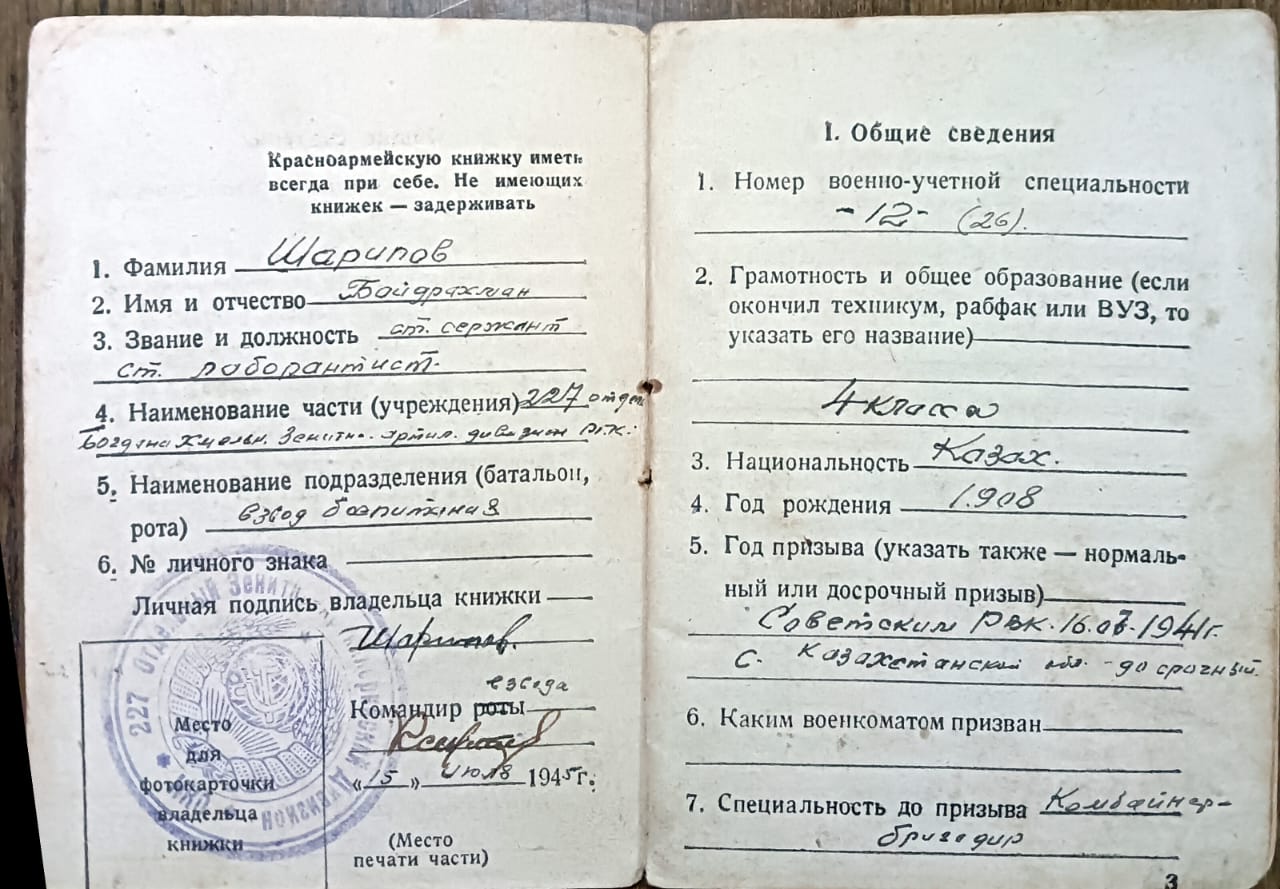 Красноармейскую книжку иметь
всегда при себе. Не имеющих
книжек — задерживать
1. Фамилия Шарипов
2. Имя и отчество Байдрахман
3. Звание и должность ст. сержант
ст. лаборантист.
4. Наименование части (учреждения) 227 отдел
Богдана Хмельн. Зенитн. артил. дивизион РГК.
5. Наименование подразделения (батальон,
рота) взвод боепитания
6. № личного знака
Личная подпись владельца книжки
Шарипов.
взвода
Командир роты
«15» июля 1945г.
(Место
печати части)
Место
для
фотокарточки
владельца
книжки
227 Отдельный Зенитн
Дивизион
I. Общие сведения
1. Номер военно-учетной специальности
-12- (26).
2. Грамотность и общее образование (если
окончил техникум, рабфак или ВУЗ, то
указать его название)
4 класса
3. Национальность Казах.
4. Год рождения 1.908
5. Год призыва (указать также — нормаль-
ный или досрочный призыв)
Советским РВК. 16. 1941г.
С. Казахстанской обл. - досрочный.
6. Каким военкоматом призван
7. Специальность до призыва Комбайнер-
бригадир
3